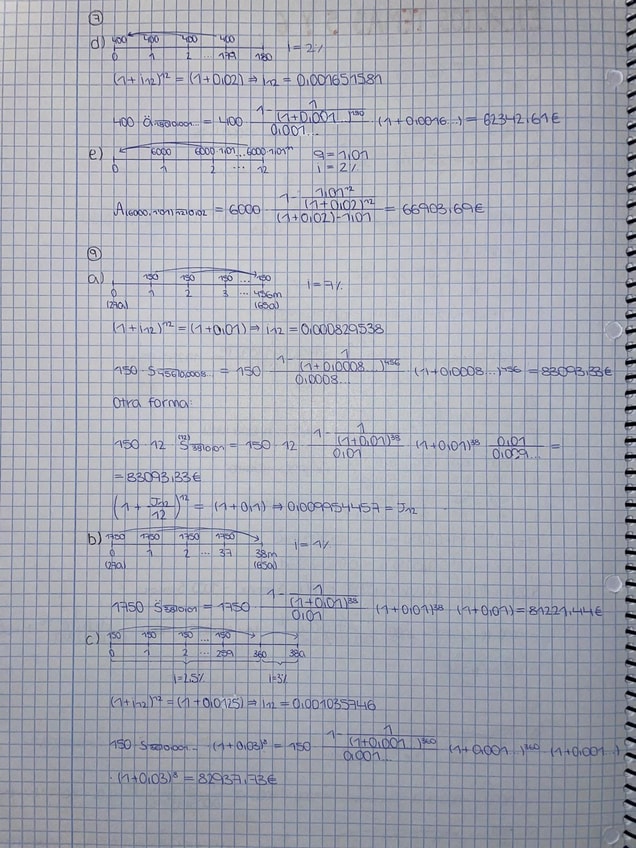 ⑦
d) 400 400 400 400
0 1 2 ... 179 180 i = 2%
(1+i₁₂)¹² = (1+0,02) ⇒ i₁₂ = 0,001651581
400 ä₁₈₀⌝₀,₀₀₁... = 400 · (1 - 1/(1+0,001...)¹⁸⁰)/0,001... · (1+0,0016...) = 62342,61€
e) 6000 6000·1,01...6000·1,01¹¹ q = 1,01
0 1 2 ... 12 i = 2%
A(6000,1,01)₁₂⌝₀,₀₂ = 6000 · (1 - 1,01¹²/(1+0,02)¹²)/((1+0,02)-1,01) = 66903,69€
⑨
a) 150 150 150 ... 150
0 1 2 3 ... 456m i = 1%
(27a) (65a)
(1+i₁₂)¹² = (1+0,01) ⇒ i₁₂ = 0,000829538
150 · S₄₅₆⌝₀,₀₀₀₈... = 150 · (1 - 1/(1+0,0008...)⁴⁵⁶)/0,0008... · (1+0,0008...)⁴⁵⁶ = 83093,33€
Otra forma:
150 · 12 · S⁽¹²⁾₃₈⌝₀,₀₁ = 150 · 12 · (1 - 1/(1+0,01)³⁸)/0,01 · (1+0,01)³⁸ · 0,01/0,009... =
= 83093,33€
(1 + J₁₂/12)¹² = (1+0,1) ⇒ 0,009954457 = J₁₂
b) 1750 1750 1750 1750
0 1 2 ... 37 38m i = 1%
(27a) (65a)
1750 · S̈₃₈⌝₀,₀₁ = 1750 · (1 - 1/(1+0,01)³⁸)/0,01 · (1+0,01)³⁸ · (1+0,01) = 81221,44€
c) 150 150 150 ... 150
0 1 2 ... 259 360
(1+i₁₂)¹² = (1+0,0125) ⇒ i₁₂ = 0,001035746
150 · · (1+0,03)⁸ = 150 · (1 - 1/(1+0,001...)³⁶⁰)/0,001... · (1+0,001...)³⁶⁰ · (1+0,001...)
· (1+0,03)⁸ = 82937,73€